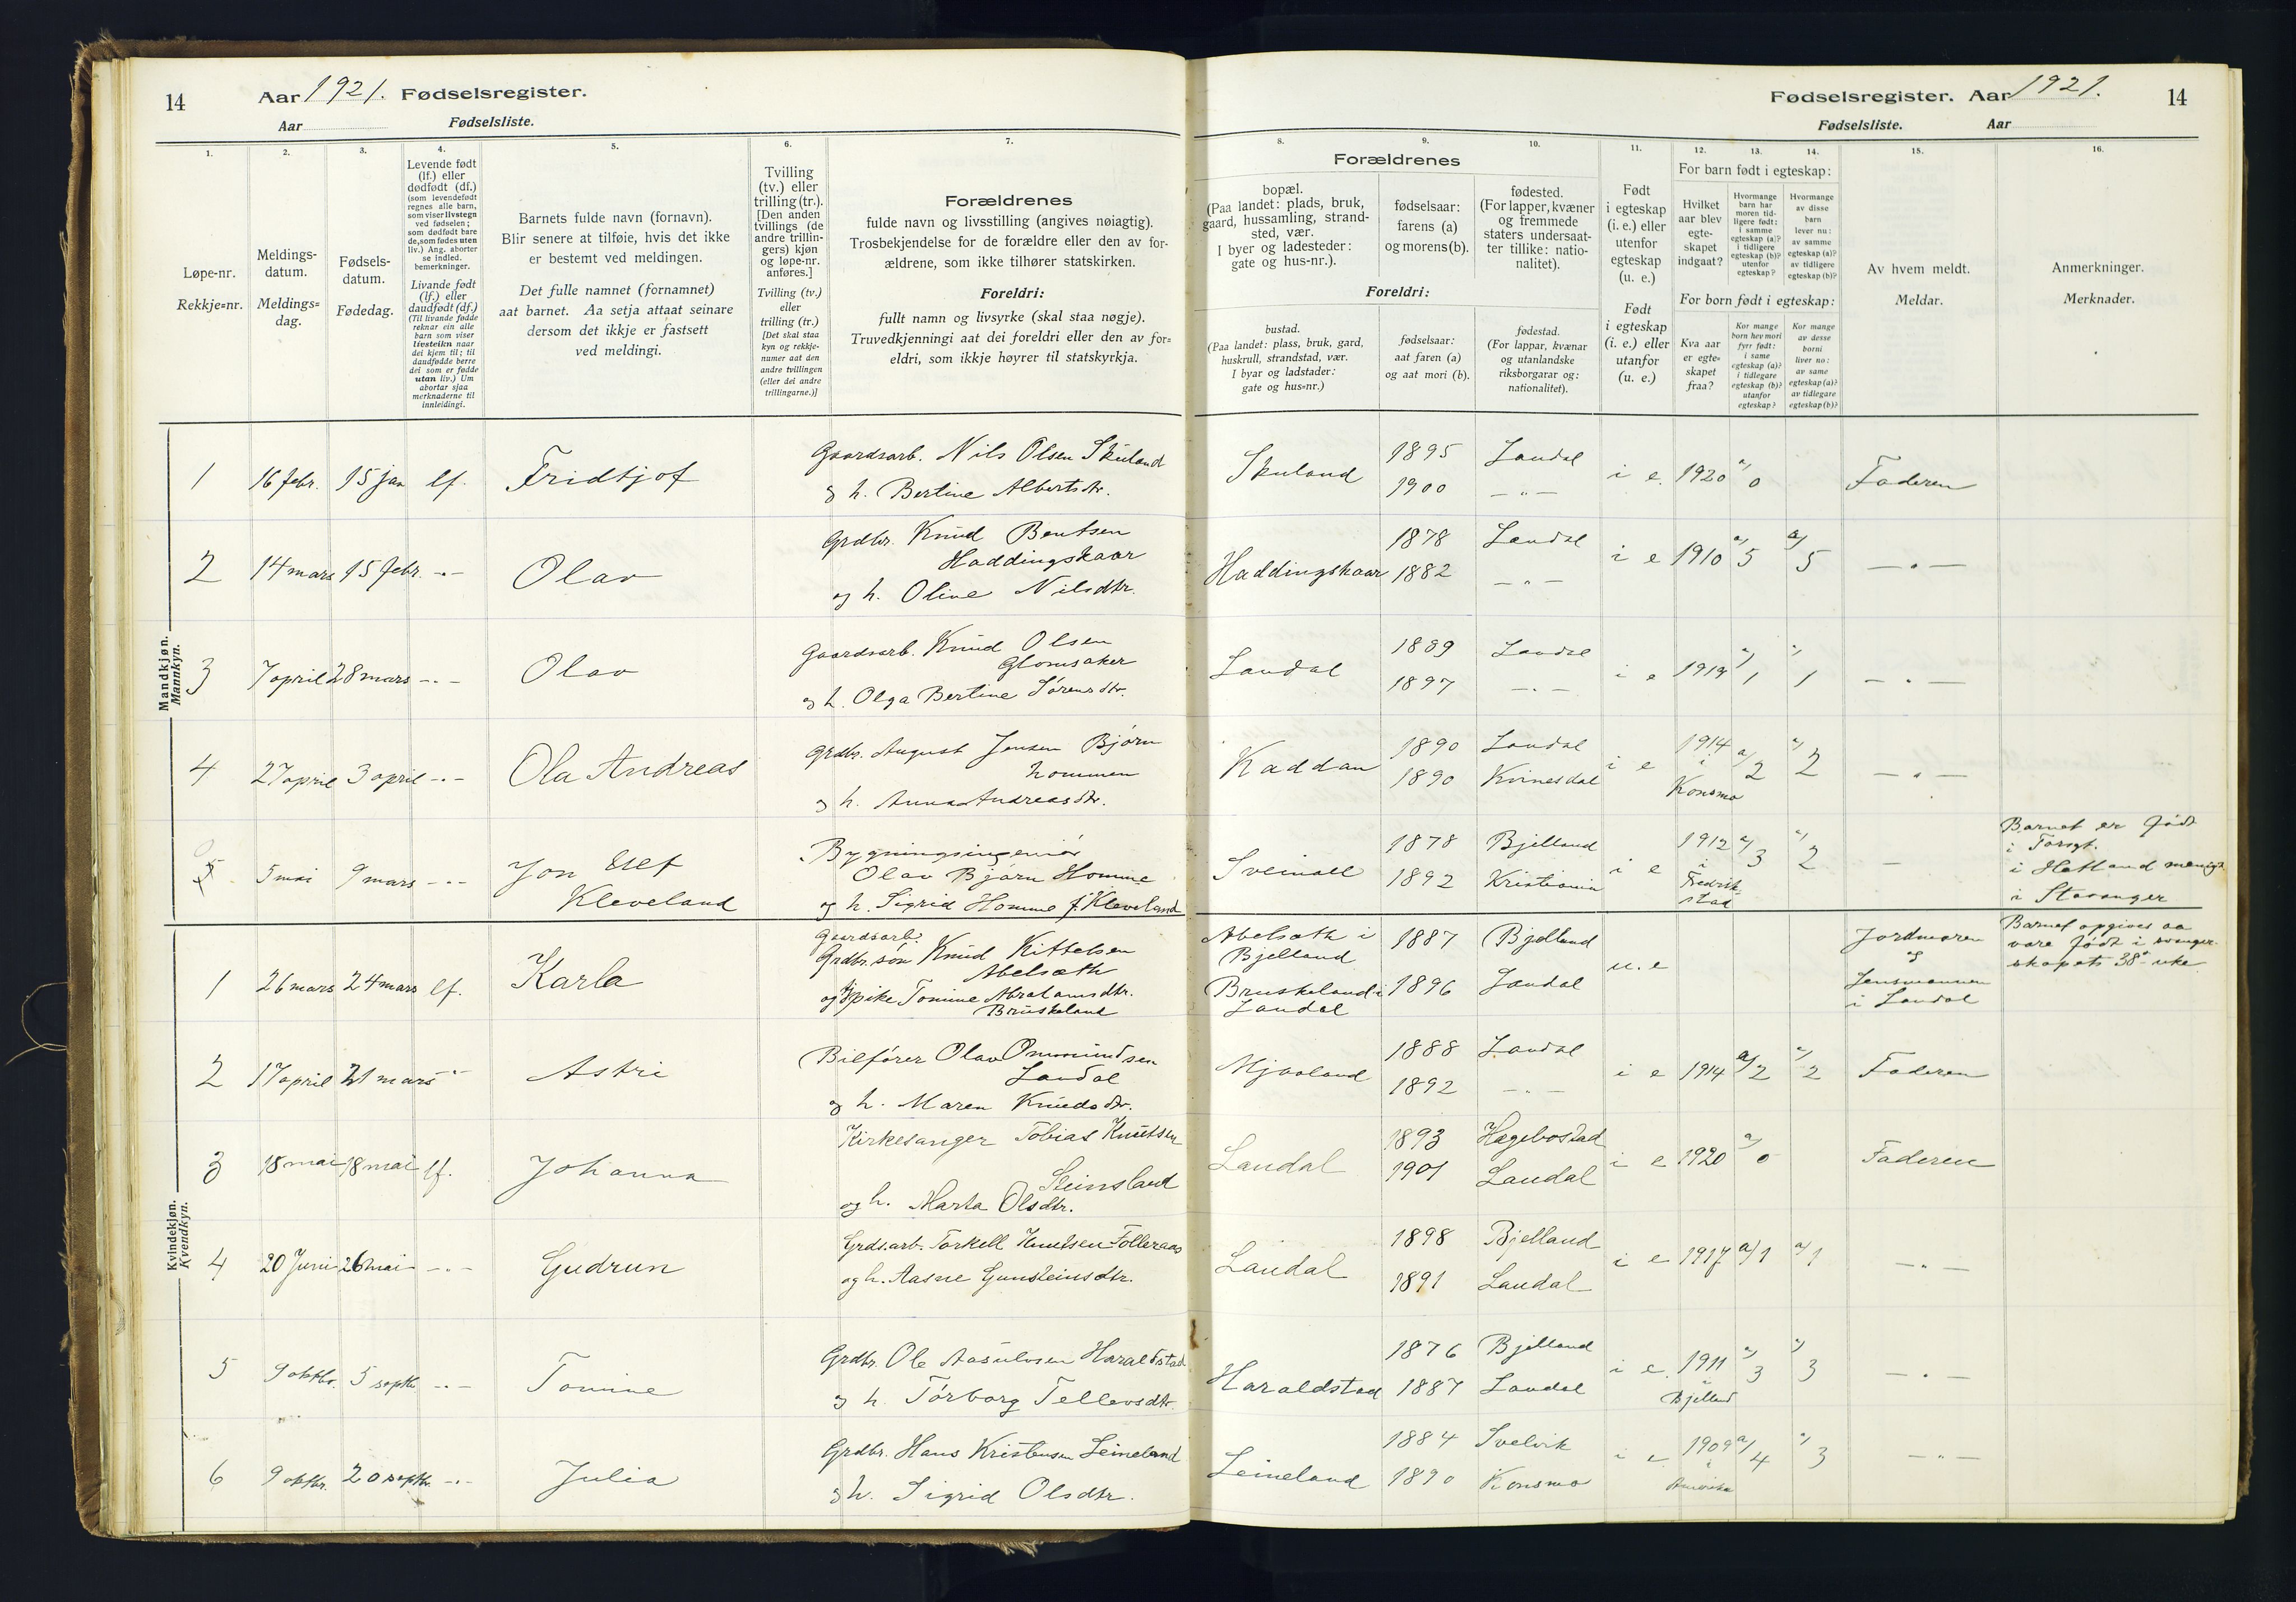 14 Aar 1921. Fødselsregister.
Aar Fødselsliste.
Fødselsregister. Aar 1921. 14
Fødselsliste. Aar
1.
Løpe-nr.
Rekkje=nr.
2.
Meldings-
datum.
Meldings=
dag.
3.
Fødsels-
datum.
Fødedag.
4.
Levende født
(lf.) eller
dødfødt (df.)
(som levendefødt
regnes alle barn,
som viser livstegn
ved fødselen;
som dødfødt bare
de, som fødes uten
liv.) Ang. aborter
se indled.
bemerkninger.
Livande født
(lf.) eller
daudfødt (df.)
(Til livande fødde
reknar ein alle
barn som viser
livsteikn naar
dei kjem til; til
daudfødde berre
dei som er fødde
utan liv.) Um
abortar sjaa
merknaderne til
innleidingi.
5.
Barnets fulde navn (fornavn).
Blir senere at tilføie, hvis det ikke
er bestemt ved meldingen.
Det fulle namnet (fornamnet)
aat barnet. Aa setja attaat seinare
dersom det ikkje er fastsett
ved meldingi.
6.
Tvilling
(tv.) eller
trilling (tr.).
[Den anden
tvillings (de
andre trillin-
gers) kjøn
og løpe-nr.
anføres.]
Tvilling (tv.)
eller
trilling (tr.)
[Det skal staa
kyn og rekkje-
numer aat den
andre tvillingen
(eller dei andre
trillingarne.)]
7.
Forældrenes
fulde navn og livsstilling (angives nøiagtig).
Trosbekjendelse for de forældre eller den av for-
ældrene, som ikke tilhører statskirken.
Foreldri:
fullt namn og livsyrke (skal staa nøgje).
Truvedkjenningi aat dei foreldri eller den av for=
eldri, som ikkje høyrer til statskyrkja.
8. 9. 10.
Forældrenes
bopæl.
(Paa landet: plads, bruk,
gaard, hussamling, strand-
sted, vær.
I byer og ladesteder:
gate og hus-nr.).
fødselsaar:
farens (a)
og morens (b).
fødested.
(For lapper, kvæner
og fremmede
staters undersaat-
ter tillike: natio-
nalitet).
Foreldri:
bustad.
(Paa landet: plass, bruk, gard,
huskrull, strandstad, vær.
I byar og ladstader:
gate og hus=nr.)
fødselsaar:
aat faren (a)
og aat mori (b).
fødestad.
(For lappar, kvænar
og utanlandske
riksborgarar og:
nationalitet).
11.
Født
i egteskap
(i. e.) eller
utenfor
egteskap
(u. e.)
Født
i egteskap
(i. e.) eller
utanfor
(u. e.)
12. 13. 14.
For barn født i egteskap:
Hvilket
aar blev
egte-
skapet
indgaat?
Hvormange
barn har
moren tid-
ligere født:
i samme
egteskap (a)?
i tidligere
egteskap (b)?
utenfor
egteskap?
Hvormange
av disse
barn
lever nu:
av samme
egteskap (a)?
av tidligere
egteskap (b)?
For born født i egteskap:
Kva aar
er egte=
skapet
fraa?
Kor mange
born hev mori
fyrr født:
i same
egteskap (a)?
i tidlegare
egteskap (b)?
utanfor
egteskap?
Kor mange
av desse
borni
liver no:
av same
egteskap (a)?
av tidlegare
egteskap (b)?
15.
Av hvem meldt.
Meldar.
16.
Anmerkninger.
Merknader.
Mandkjøn.
Mannkyn.
1 16 febr. 15 jan lf. Fridtjof
Gaardsarb. Nils Olsen Skuland
og h. Bertine Albertsdtr.
Skuland 1895 Laudal i e. 1920 a/ 0 Faderen
1900 — " —
2 14 mars 15 febr. -"- Olav
Grdbr. Knud Bentsen
Haddingskaar
og h. Oline Nilsdtr.
Haddingskaar 1878 Laudal i e 1910 a/ 5 a/ 5 — " —
1882 — " —
3 7 april 28 mars -"- Olav
Gaardsarb. Knud Olsen
Glomsaker
og h. Olga Bertine Sørensdtr.
Laudal 1889 Laudal i e 1919 a/ 1 a/ 1 — " —
1897 — " —
4 27 april 3 april -"- Ola Andreas
Grdbr. August Jensen Bjørn
hommen
og h. Anna Andreasdtr.
Kaddan 1890 Laudal i e 1914 i Konsmo a/ 2 a/ 2 — " —
1890 Kvinesdal
5 5 mai 9 mars -"- Jon Elef
Kleveland
Bygningsingeniør
Olav Bjørn Homme
og h. Sigrid Homme f. Kleveland
Sveinall 1878 Bjelland i e 1912 i Fredrik-
stad a/ 3 a/ 2 —
1892 Kristiania
Barnet er født
i Torsgt.
i Hetland menigh
i Stavanger
Kvindekjøn.
Kvendkyn.
1 26 mars 24 mars lf. Karla
Gaardsarb.
Grdbr. søn Knud Kittelsen
Abelsæth
og pike Tomine Abrahamsdtr.
Bruskeland
Abelsæth i
Bjelland
Bruskeland i
Laudal
1887 Bjelland
1896 Laudal
u. e
Jordmoren
og
Lensmannen
i Laudal
Barnet opgives aa
være født i svanger-
skapets 38de uke
2 17 april 21 mars -"- Astri
Bilfører Olav Ommundsen
Laudal
og h. Maren Knudsdtr.
Mjaaland 1888 Laudal i e 1914 a/ 2 a/ 2 Faderen
1892 — " —
3 18 mai 18 mai lf. Johanna
Kirkesanger Tobias Knutsen
Steinsland
og h. Marta Olsdtr.
Laudal 1893 Hægebostad i e 1920 a/ 0 Faderen
1901 Laudal
4 20 Juni 26 mai -"- Gudrun
Grdsarb. Torkell Knutsen Folleraas
og h. Aasne Gunsteinsdtr.
Laudal 1898 Bjelland i e 1917 a/ 1 a/ 1 — " —
1891 Laudal
5 9 oktbr. 5 septbr -"- Tomine
Grdbr. Ole Aasulvsen Haraldstad
og h. Tórborg Tellevsdtr.
Haraldstad 1876 Bjelland i e. 1911 i Bjelland a/ 3 a/ 3 — " —
1887 Laudal
6 9 oktbr. 20 septbr. -"- Julia
Grdbr. Hans Kristensen Leineland
og h. Sigrid Olsdtr.
Leineland 1884 Svelvik i e. 1909 i Amerika a/ 4 a/ 3 — " —
1890 Konsmo